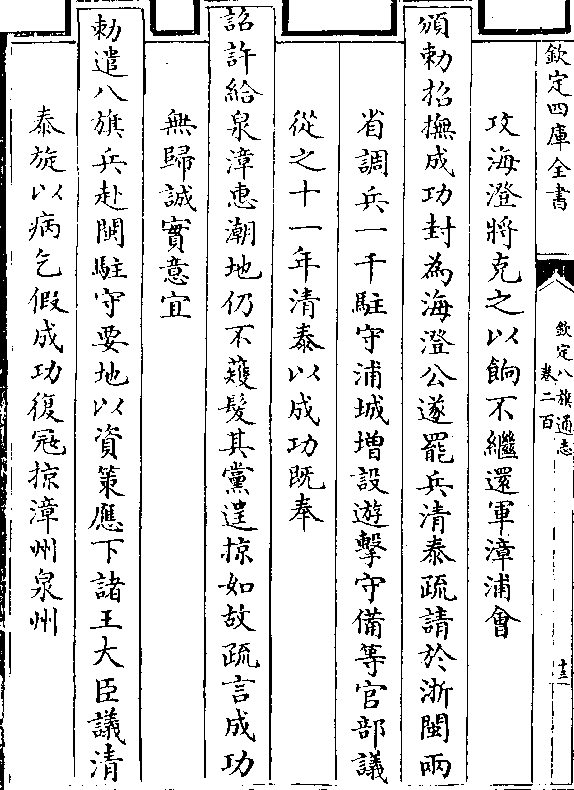 欽定四庫全書
欽定八旗通志
卷二百
十三
攻海澄將克之以餉不繼還軍漳浦會
頒勅招撫成功封為海澄公遂罷兵清泰疏請於浙閩兩
省調兵一千駐守浦城增設遊擊守備等官部議
從之十一年清泰以成功既奉
詔許給泉漳惠潮地仍不薙髮其黨逞掠如故疏言成功
無歸誠實意宜
勅遣八旗兵赴閩駐守要地以資策應下諸王大臣議清
泰旋以病乞假成功復冦掠漳州泉州